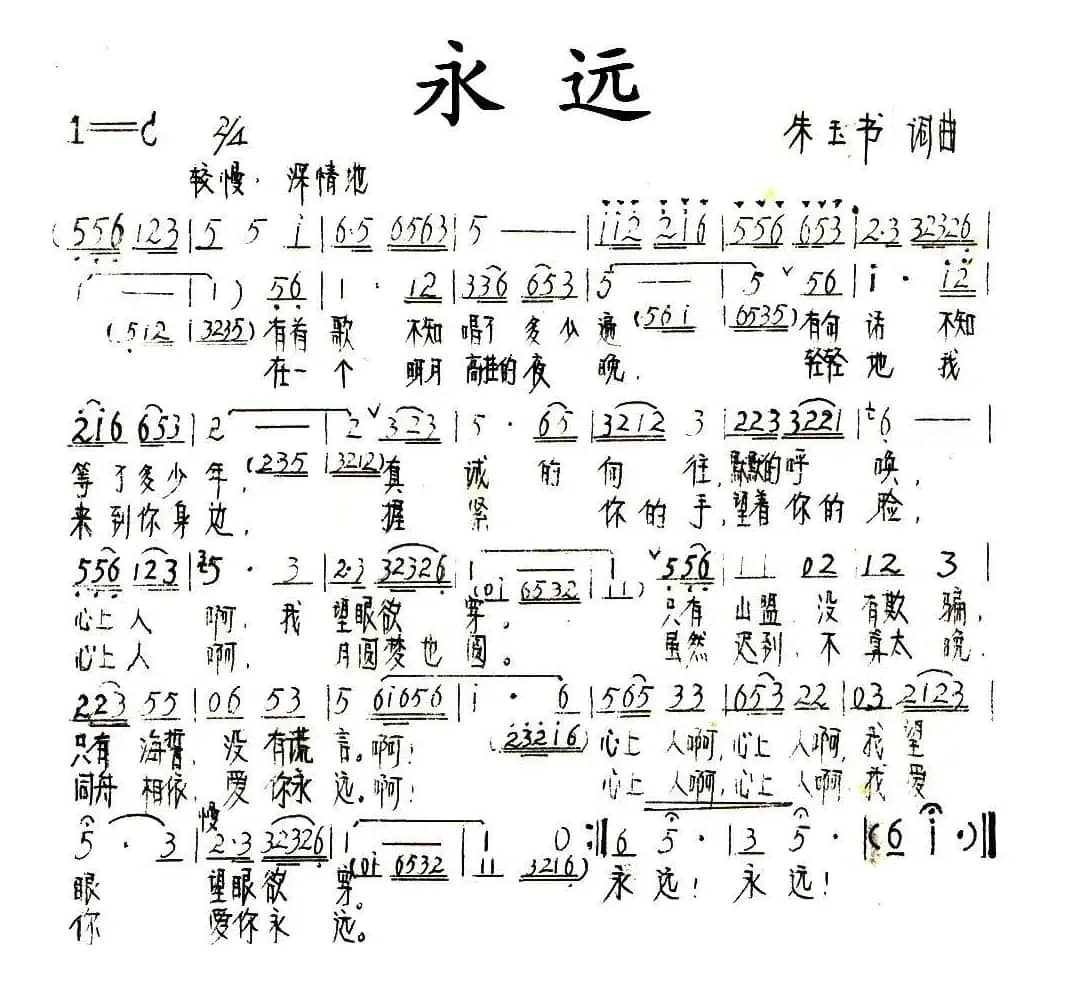 永远
1=C 2/4
朱玉书 词曲
较慢. 深情地
(556 123 | 5 5 i | 6·5 0563 | 5 — — | i i 2 2 i 6 | 556 653 | 2·3 32326 |
1 — — | 1 ) 56 | 1 · 12 | 336 653 | 5 — — | 5 ˅ 56 | i · i2 |
(5i2 i 3235) (56i | 6535)
有首歌 不知唱了多少遍 有句话 不知
在一个 明月高挂的夜晚. 轻轻地我
2i6 653 | 2 — — | 2 ˅ 323 | 5 · 65 | 3212 3 | 223 3221 | 6 — — |
(235 | 3212)
等了多少年, 真诚的向往,默默的呼唤,
来到你身边, 握紧你的手,望着你的脸,
556 123 | 5 · 3 | 2·3 32326 | 1 — — | 1 ˅ 556 | 11 02 | 12 3 |
(0i 6532 | 11)
心上人啊,我望眼欲穿。只有山盟,没有欺骗,
心上人啊,月圆梦也圆。虽然迟到,不算太晚,
223 55 | 06 53 | 5 6i056 | i · 6 | 565 33 | 653 22 | 03 2123 |
(232i6)
只有海誓,没有谎言。啊! 心上人啊,心上人啊,我望
同舟相依,爱你永远。啊! 心上人啊,心上人啊,我爱
慢
5 · 3 | 2·3 32326 | 1 — — | 1 0 :‖ 6 5 · | 3 5 · ‖ (6 i ·)‖
(0i 6532 | 11 3216)
眼望眼欲穿。永远! 永远!
你爱你永远。